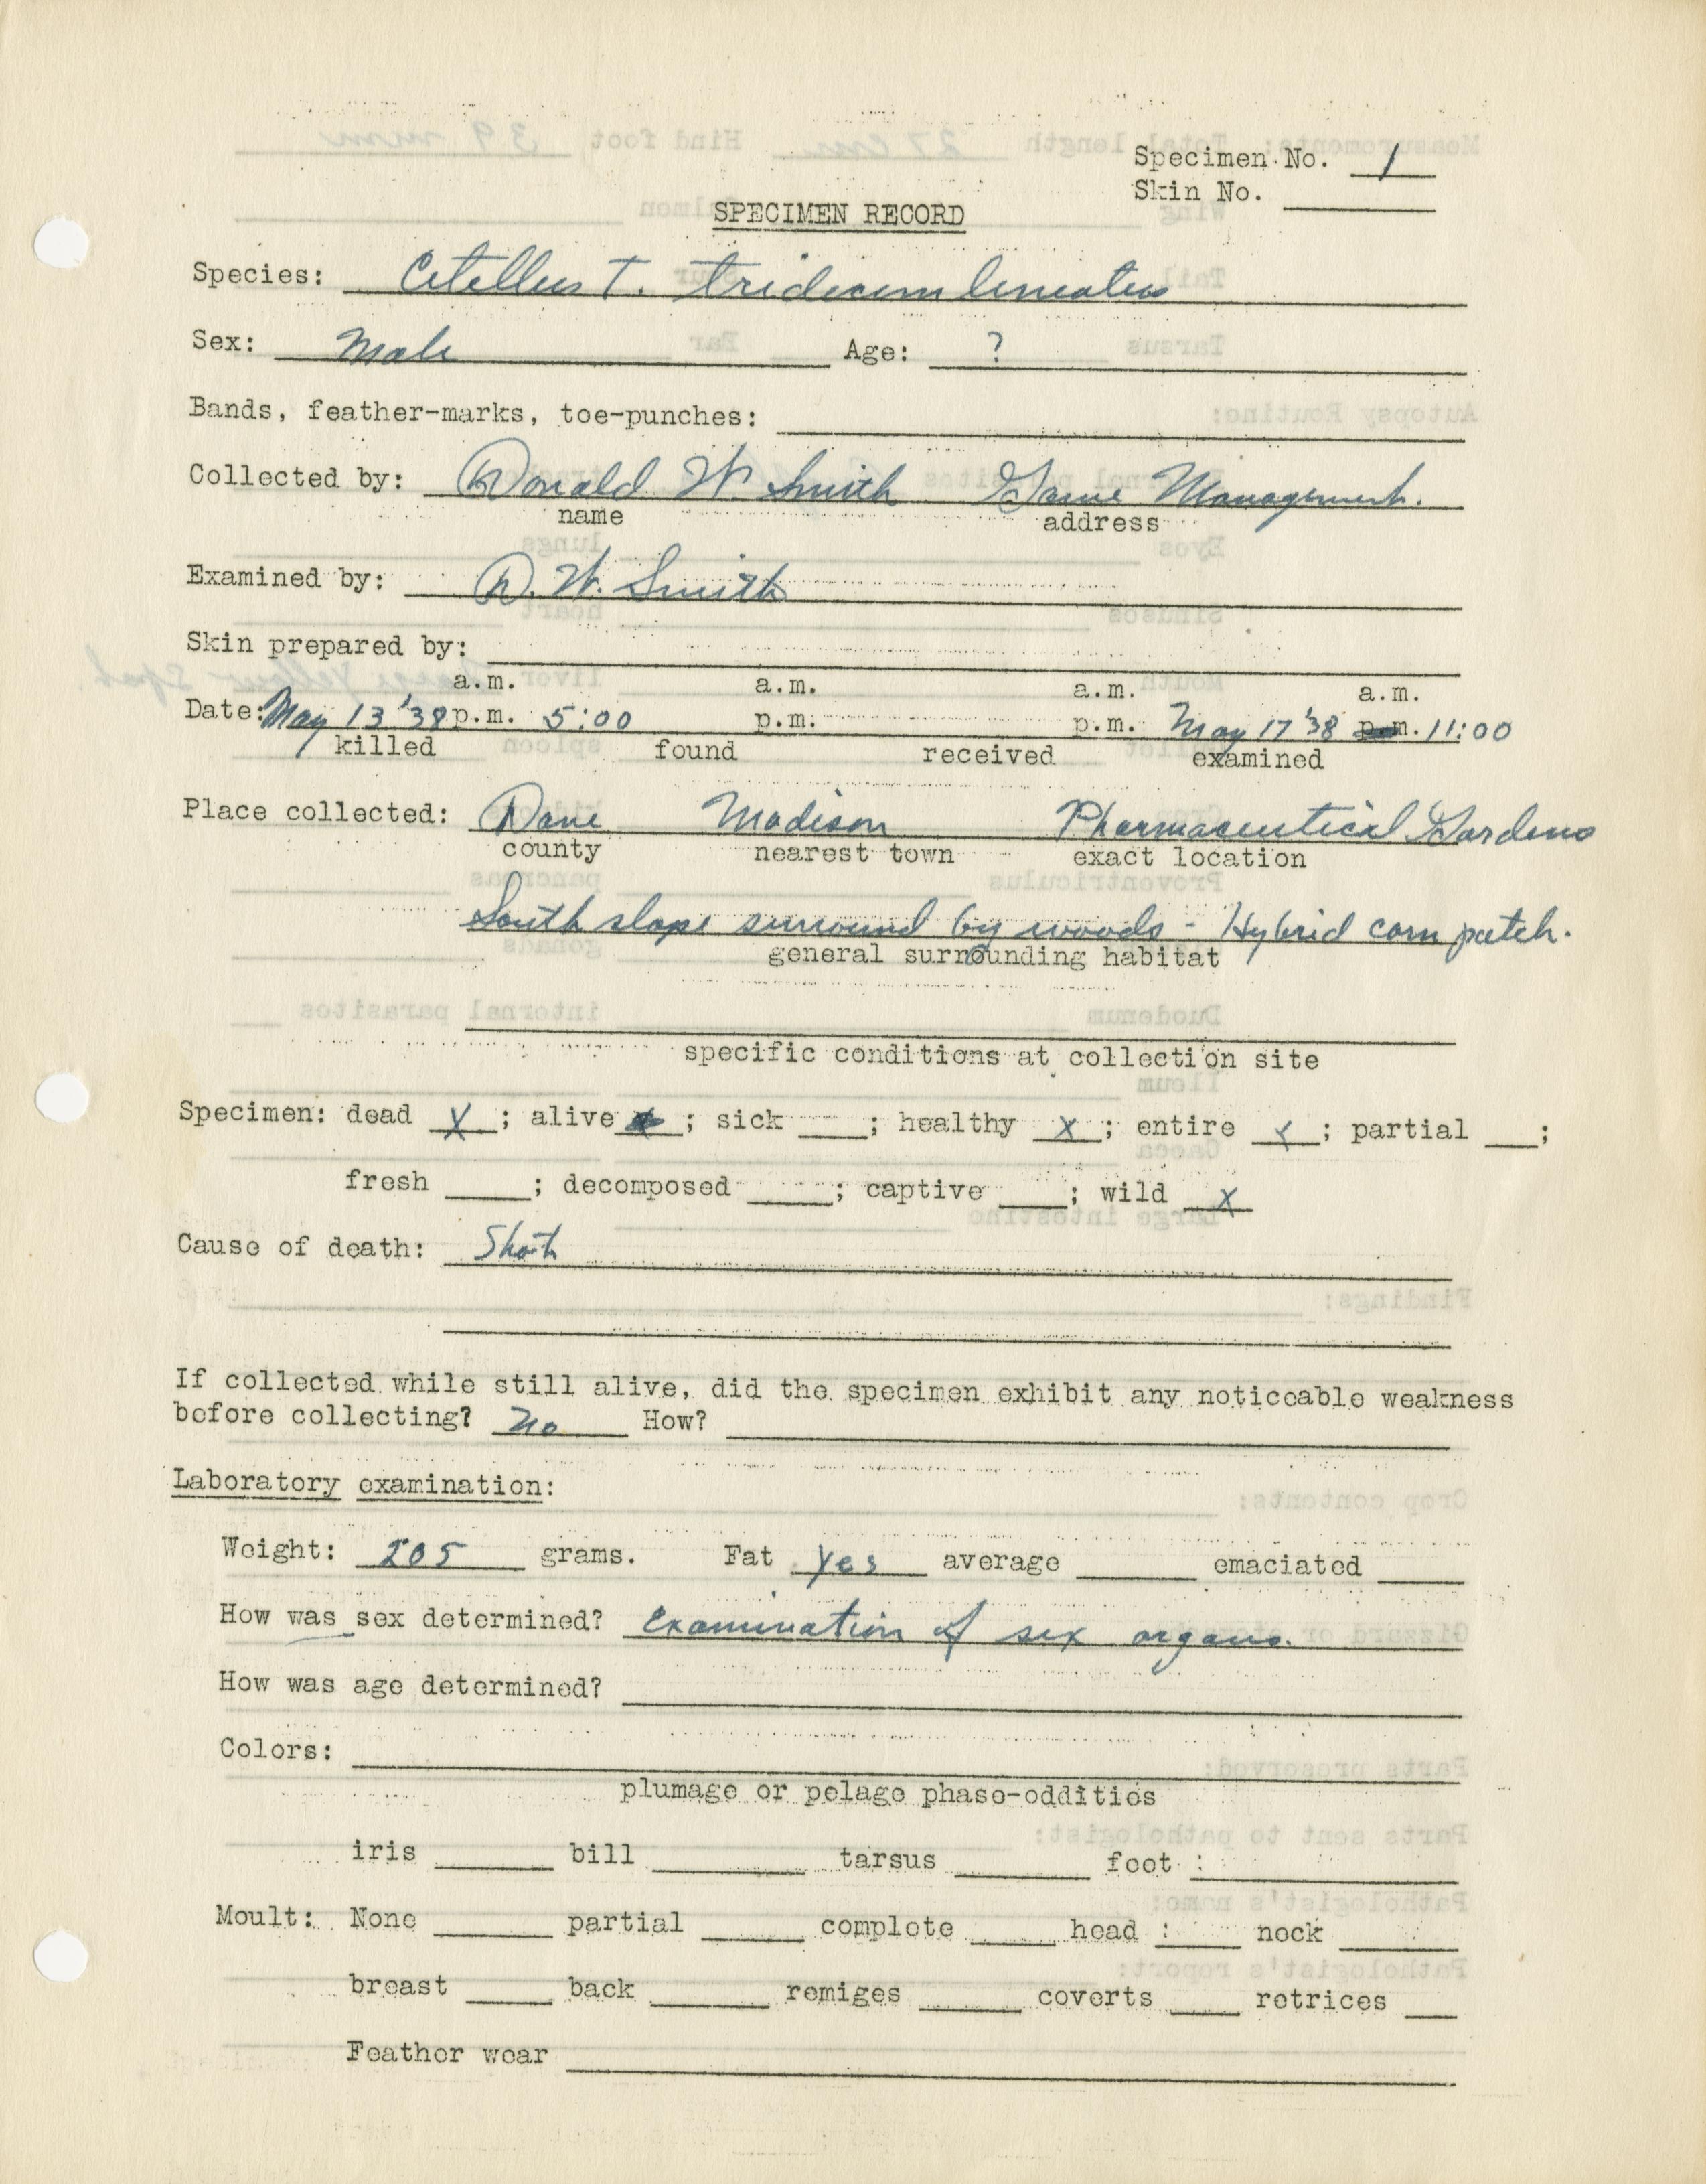 Specimen No. 1
Skin No.
SPECIMEN RECORD
Species: Citellus T. tridecemlineatus
Sex: Male Age: ?
Bands, feather-marks, toe-punches:
Collected by: Donald W. Smith Game Management.
name address
Examined by: D. W. Smith
Skin prepared by:
a.m. a.m. a.m. a.m.
Date: May 13 '38 p.m. 5:00 p.m. p.m. May 17 '38 p.m. 11:00
killed found received examined
Place collected: Dane Madison Pharmaceutical Gardens
county nearest town exact location
South slope surround by woods - Hybrid corn patch.
general surrounding habitat
specific conditions at collection site
Specimen: dead X; alive ; sick ; healthy X; entire X; partial ;
fresh ; decomposed ; captive ; wild X
Cause of death: Shot
If collected while still alive, did the specimen exhibit any noticeable weakness
before collecting? No How?
Laboratory examination:
Weight: 205 grams. Fat Yes average emaciated
How was sex determined? Examination of sex organs.
How was age determined?
Colors:
plumage or pelage phase-oddities
iris bill tarsus foot :
Moult: None partial complete head : neck
breast back remiges coverts retrices
Feather wear